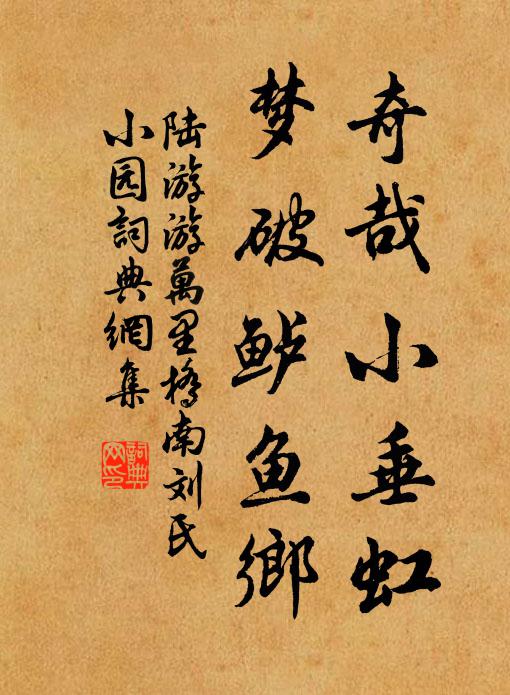 奇哉小垂虹
梦破鲈鱼鄉
陆游游萬里橋南刘氏
小园詞典網集
詞典網印